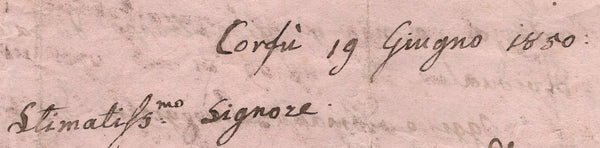 Corfù 19 Giugno 1850.
Stimatiss.mo Signore.